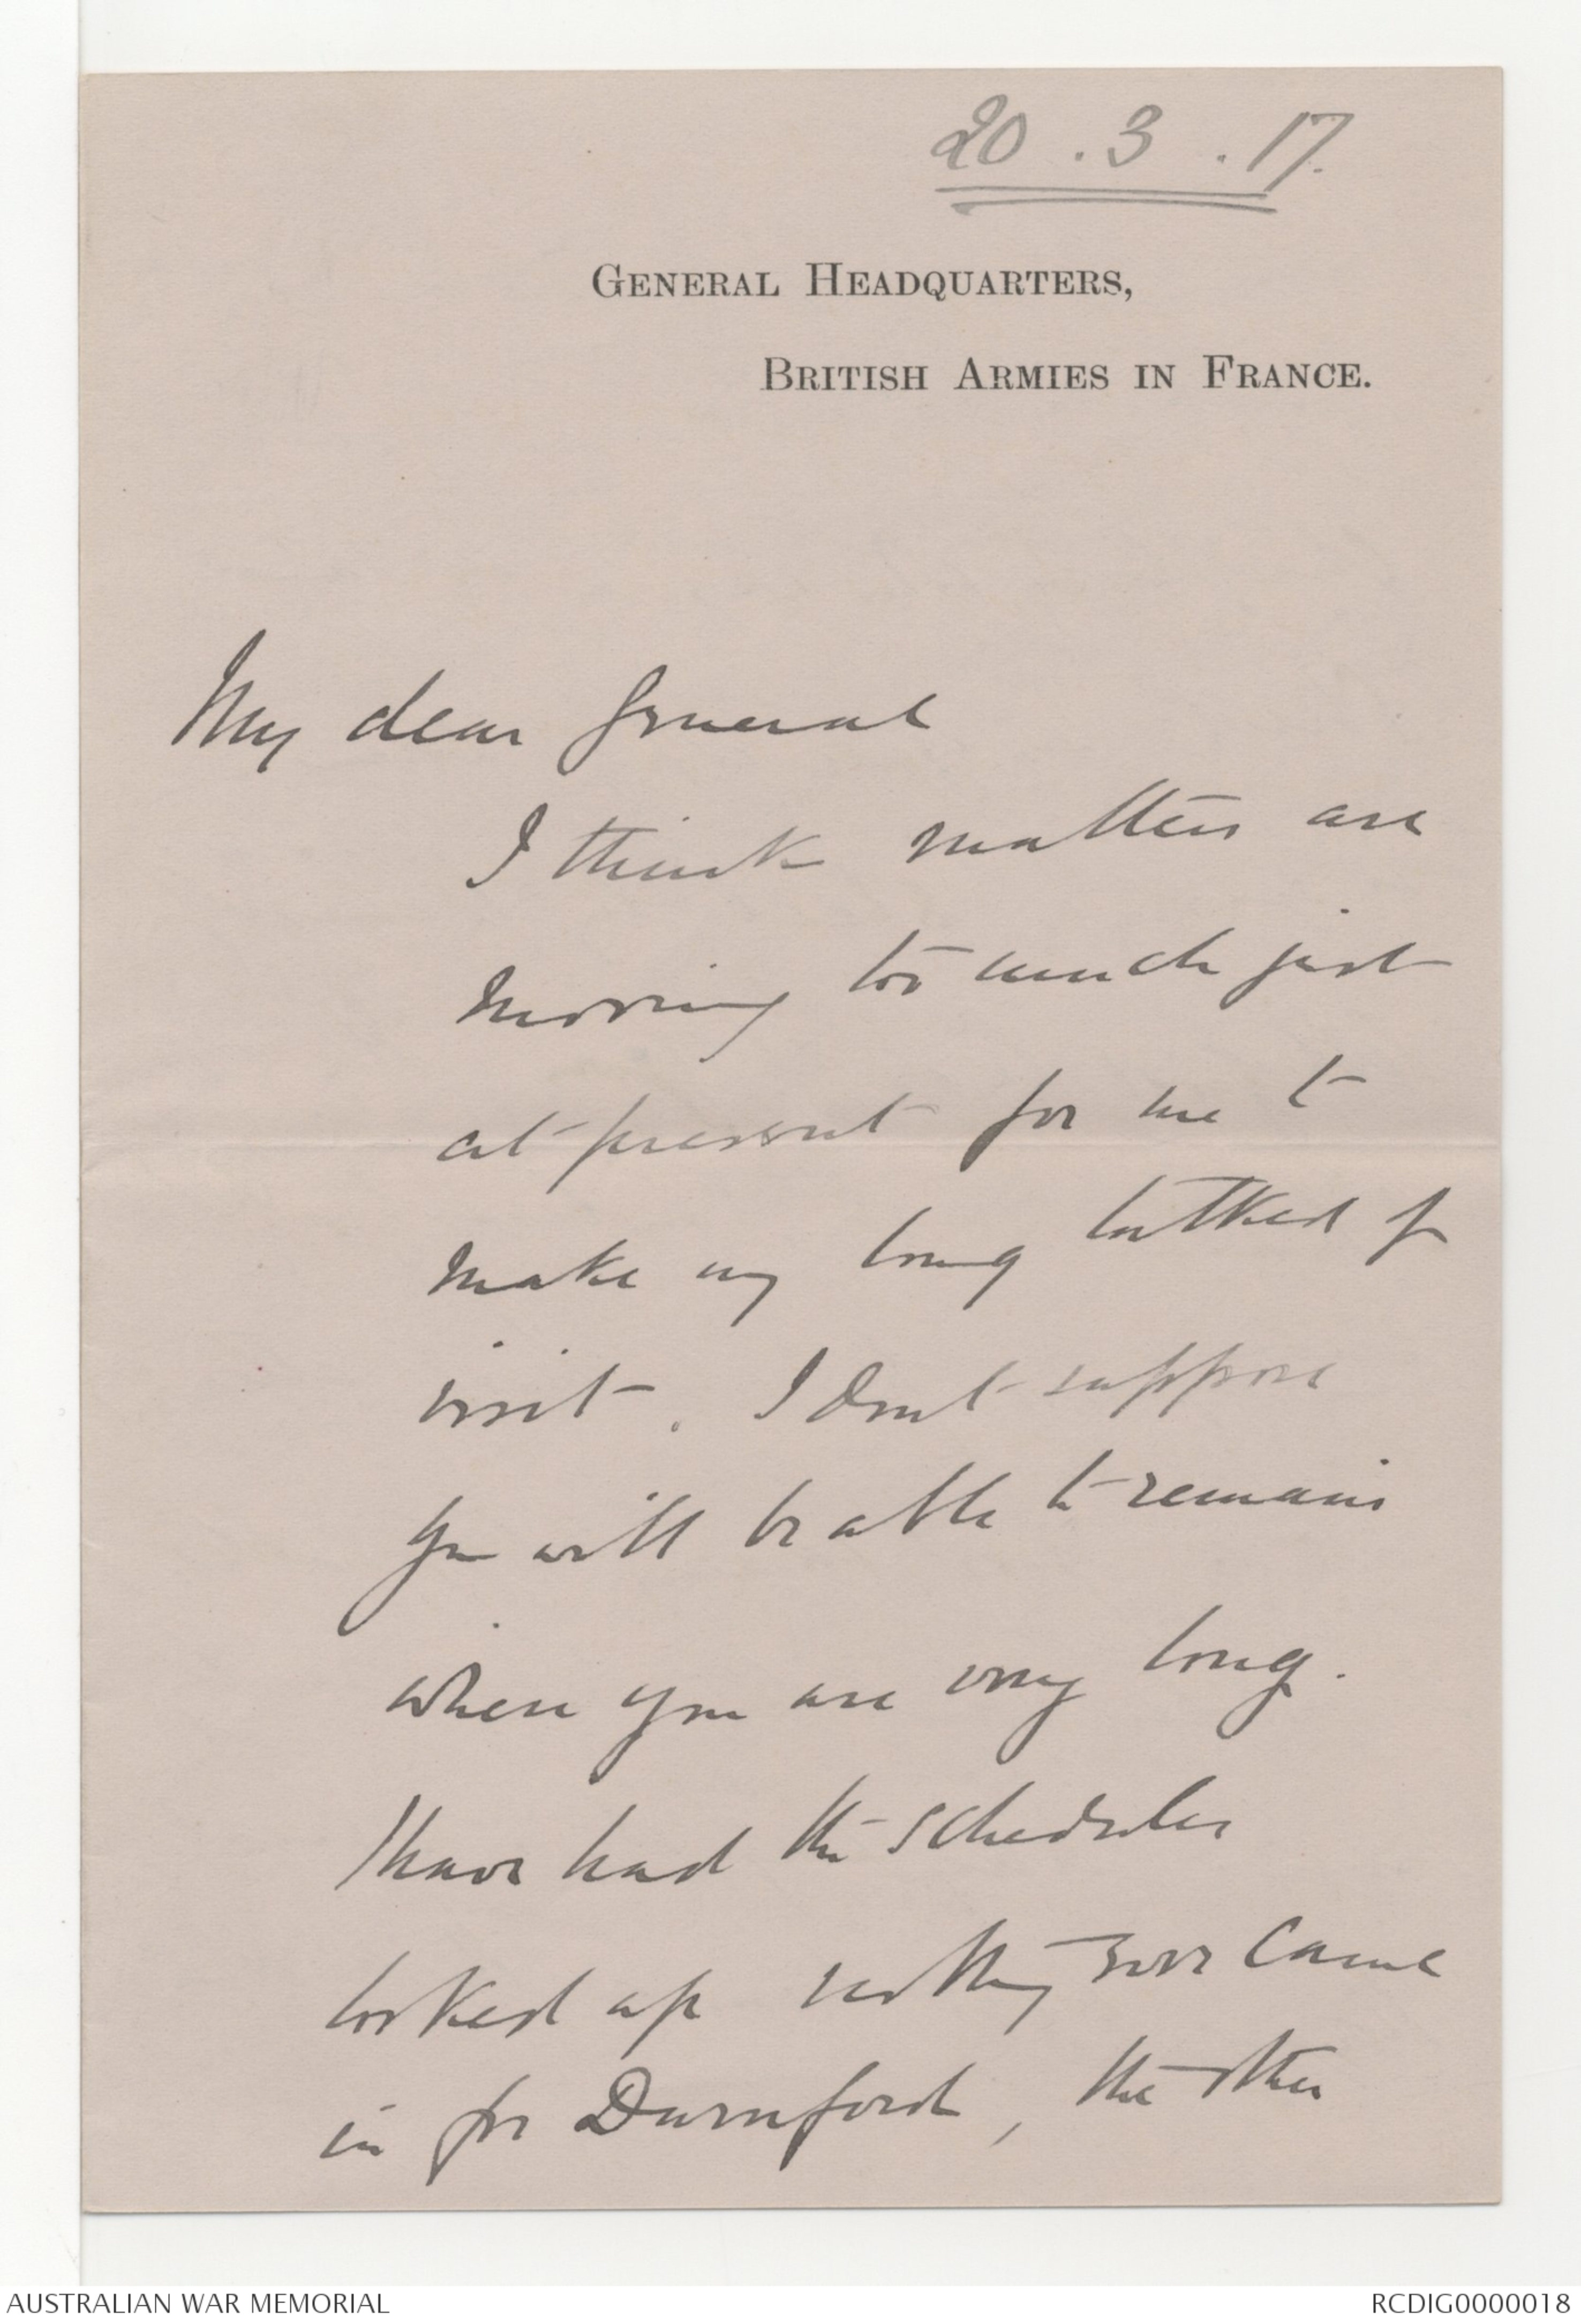 20.3.17.
GENERAL HEADQUARTERS,
BRITISH ARMIES IN FRANCE.
My dear General
I think matters are
moving too much just
at present for me to
make my long talked of
visit. I dont suppose
you will be able to remain
where you are very long.
I have had the schedules
looked up nothing ever came
in for Durnford, the other
AUSTRALIAN WAR MEMORIAL
RCDIG0000018